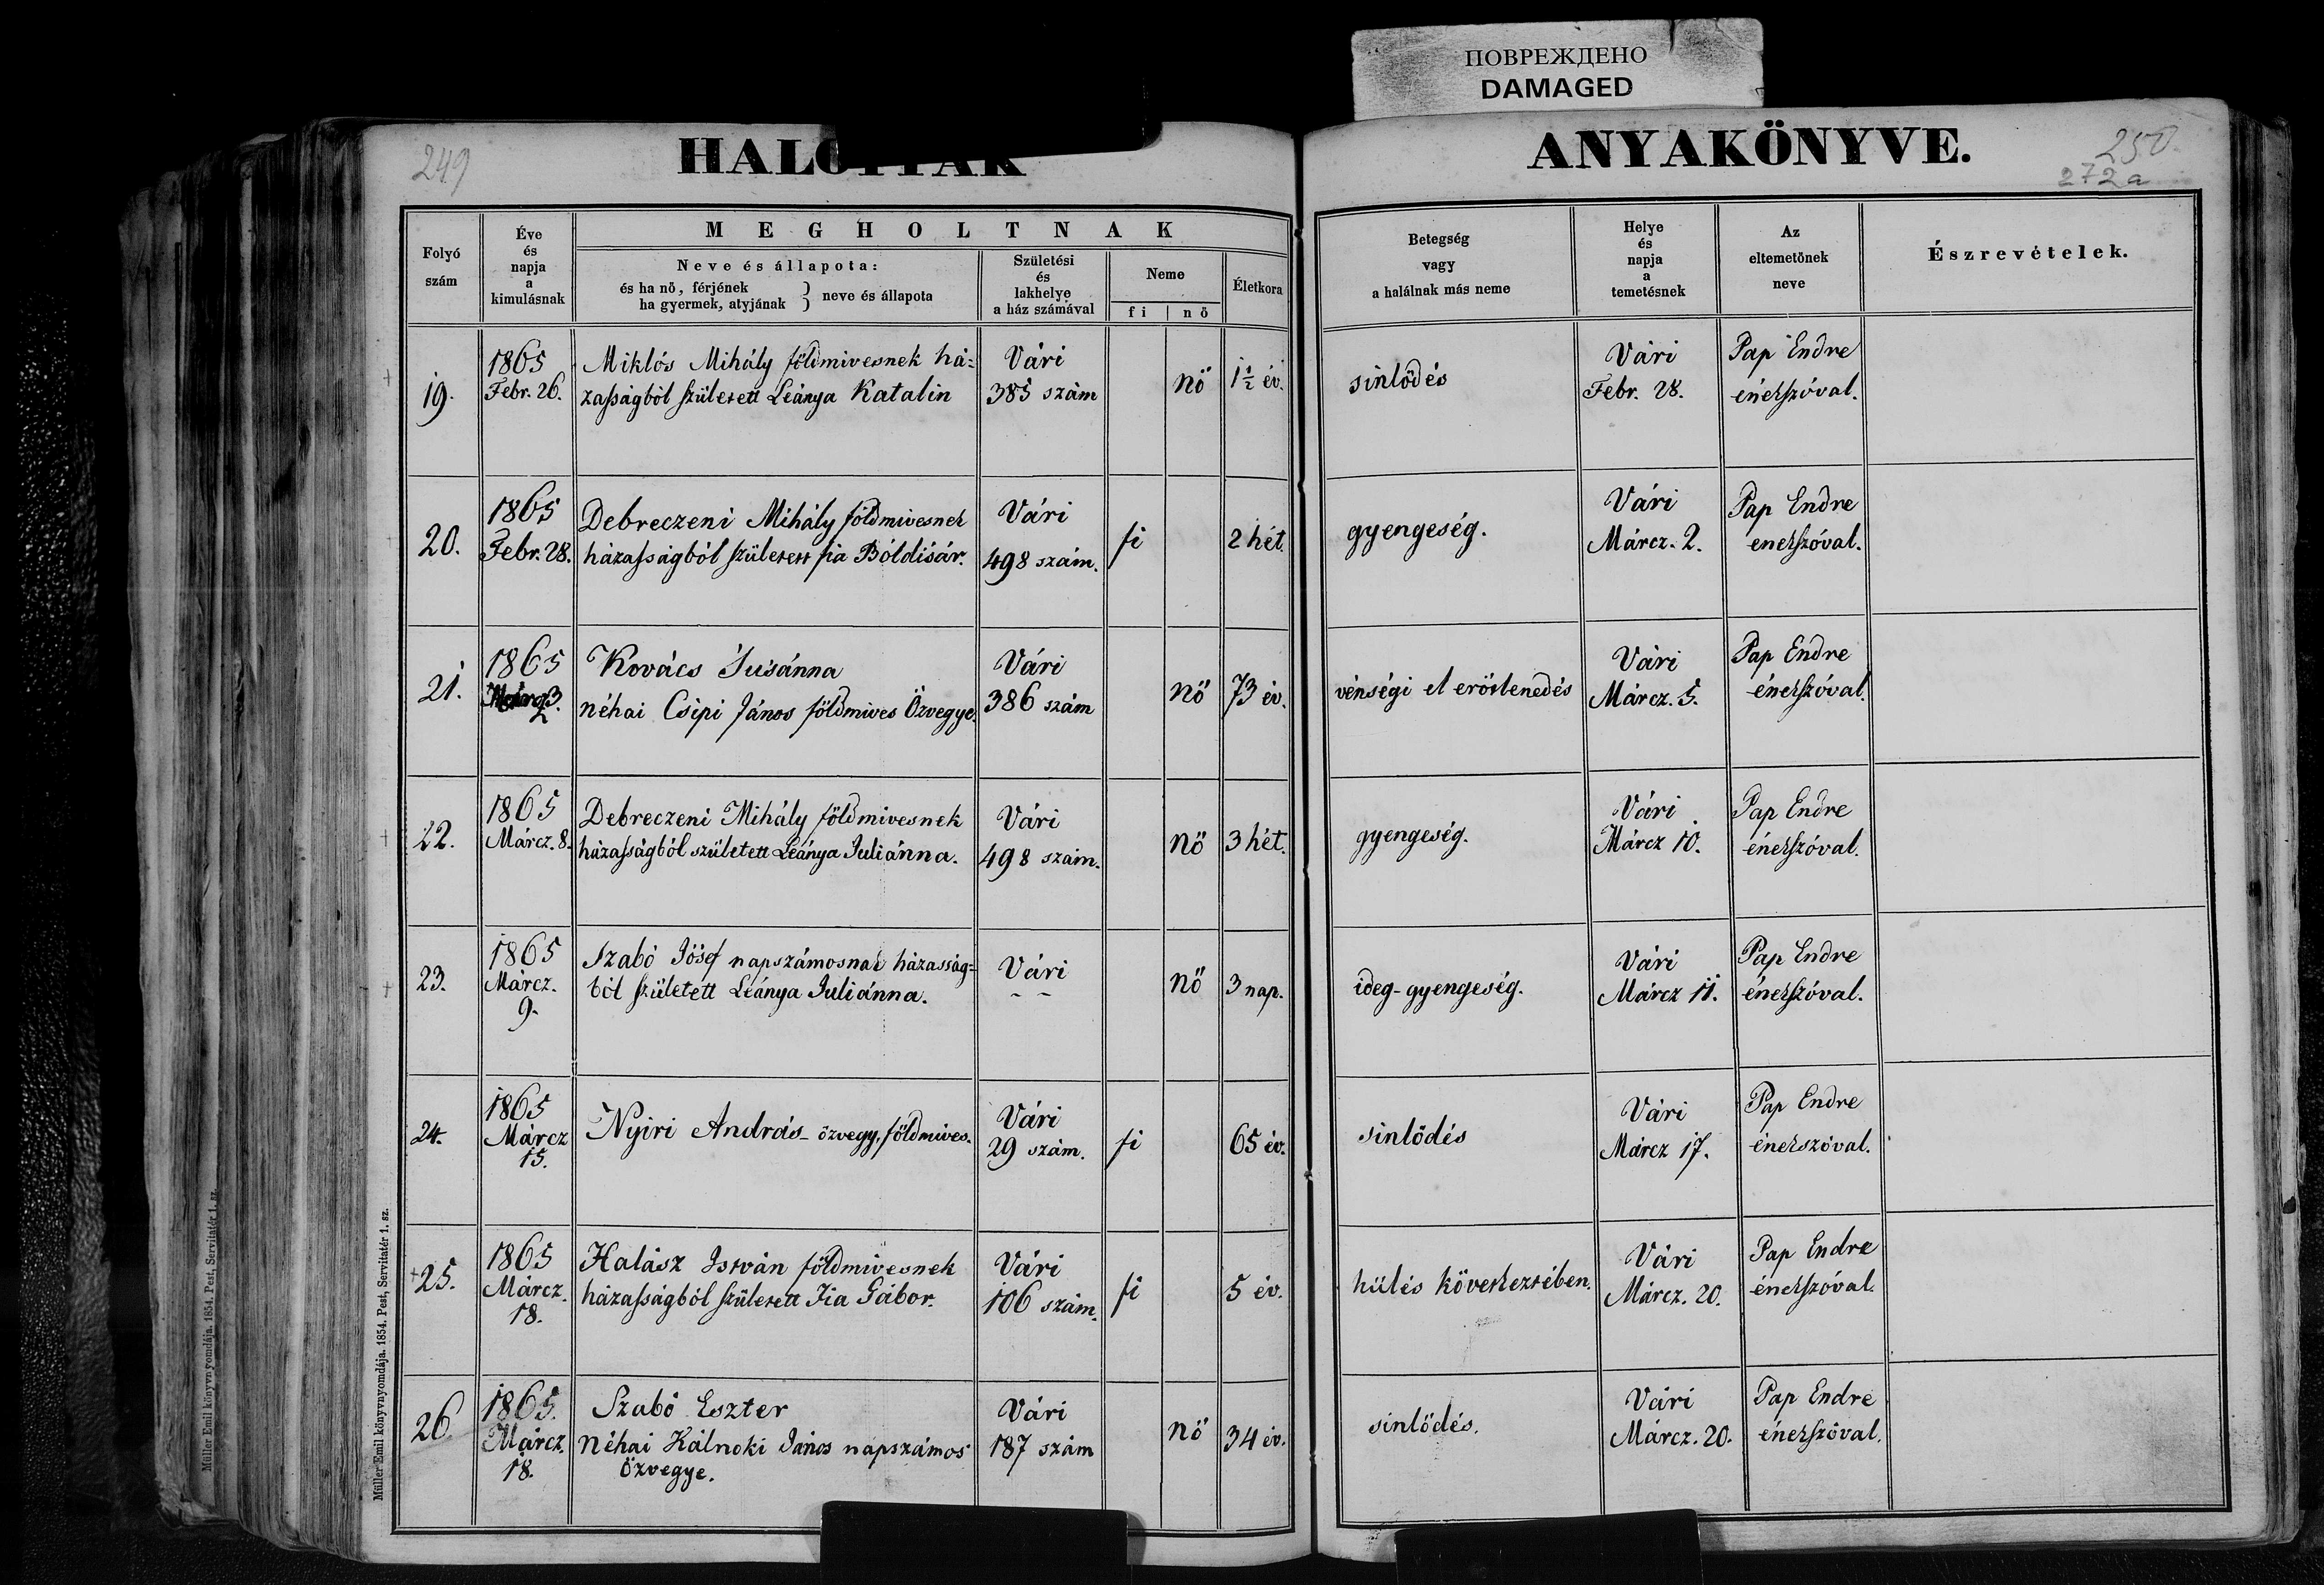 ПОВРЕЖДЕНО
DAMAGED
249
HALOTTAK
ANYAKÖNYVE.
250.
272a
Folyó
szám
Éve
és
napja
a
kimulásnak
MEGHOLTNAK
Neve és állapota:
és ha nö, férjének
ha gyermek, atyjának } neve és állapota
Születési
és
lakhelye
a ház számával
Neme
fi | nö
Életkora
Betegség
vagy
a halálnak más neme
Helye
és
napja
a
temetésnek
Az
eltemetönek
neve
Észrevételek.
19.
1865
Febr. 26.
Miklós Mihály földmivesnek há-
zaſságból ſzületett Leánya Katalin
Vári
385 szám
nö
1 1/2 év.
sinlödés
Vári
Febr. 28.
Pap Endre
énekſzóval.
20.
1865
Febr. 28.
Debreczeni Mihály földmivesnek
házaſságból ſzületett fia Bóldisár.
Vári
498 szám.
fi
2 hét.
gyengeség.
Vári
Márcz. 2.
Pap Endre
enekſzóval.
21.
1865
3.
Kovács Susánna
néhai Csipi János földmives Özvegye.
Vári
386 szám
nö
73 év.
vénségi el erötlenedés
Vári
Márcz. 5.
Pap Endre
énekſzóval.
22.
1865
Márcz. 8.
Debreczeni Mihály földmivesnek
házaſságból született Leánya Juliánna.
Vári
498 szám.
nö
3 hét.
gyengeség.
Vári
Márcz 10.
Pap Endre
énekſzóval.
23.
1865
Márcz.
9.
Szabó Jósef napszámosnak házasság-
ból ſzületett Leánya Juliánna.
Vári
- -
nö
3 nap.
ideg-gyengeség.
Vári
Márcz 11.
Pap Endre
énekſzóval.
24.
1865
Márcz
15.
Nyiri András - özvegy, földmives.
Vári
29 szám.
fi
65 év.
sinlödés
Vári
Márcz 17.
Pap Endre
énekszóval.
25.
1865
Márcz.
18.
Halász István földmivesnek
házaſságból ſzületett Fia Gábor.
Vári
106 szám.
fi
5 év.
hülés következtében.
Vári
Márcz. 20.
Pap Endre
énekſzóval.
26.
1865.
Márcz.
18.
Szabó Eszter
néhai Kálnoki János napszámos
özvegye.
Vári
187 szám
nö
34 év.
sinlödés.
Vári
Márcz. 20.
Pap Endre
énekſzóval.
Müller Emil könyvnyomdája. 1854. Pest, Servitatér 1. sz.
Müller Emil könyvnyomdája. 1854. Pest, Servitatér 1. sz.